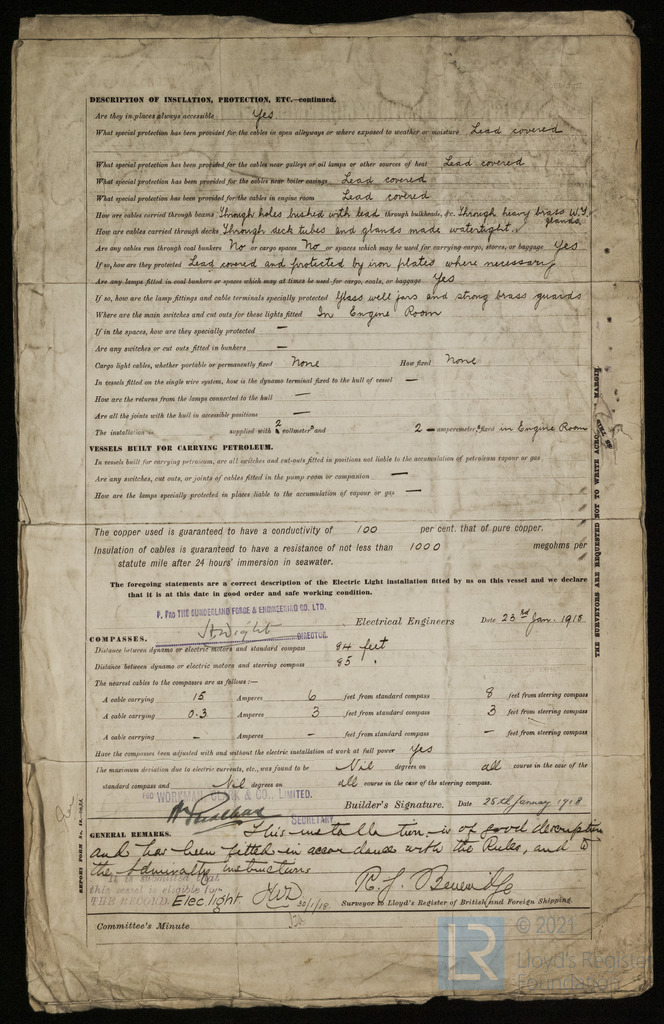 DESCRIPTION OF INSULATION, PROTECTION, ETC.—continued.
Are they in places always accessible Yes
What special protection has been provided for the cables in open alleyways or where exposed to weather or moisture Lead covered
What special protection has been provided for the cables near galleys or oil lamps or other sources of heat Lead covered
What special protection has been provided for the cables near boiler casings Lead covered
What special protection has been provided for the cables in engine room Lead covered
How are cables carried through beams Through holes bushed with lead through bulkheads, &c. Through heavy brass W.T. glands.
How are cables carried through decks Through deck tubes and glands made watertight.
Are any cables run through coal bunkers No or cargo spaces No or spaces which may be used for carrying cargo, stores, or baggage Yes
If so, how are they protected Lead covered and protected by iron plates where necessary
Are any lamps fitted in coal bunkers or spaces which may at times be used for cargo, coals, or baggage Yes
If so, how are the lamp fittings and cable terminals specially protected Glass well jars and strong brass guards
Where are the main switches and cut outs for these lights fitted In Engine Room
If in the spaces, how are they specially protected —
Are any switches or cut outs fitted in bunkers —
Cargo light cables, whether portable or permanently fixed None How fixed None
In vessels fitted on the single wire system, how is the dynamo terminal fixed to the hull of vessel —
How are the returns from the lamps connected to the hull —
Are all the joints with the hull in accessible positions —
The installation is supplied with 2 voltmeters and 2 — amperemeters, fixed in Engine Room
VESSELS BUILT FOR CARRYING PETROLEUM.
In vessels built for carrying petroleum, are all switches and cut-outs fitted in positions not liable to the accumulation of petroleum vapour or gas
Are any switches, cut outs, or joints of cables fitted in the pump room or companion —
How are the lamps specially protected in places liable to the accumulation of vapour or gas —
The copper used is guaranteed to have a conductivity of 100 per cent. that of pure copper.
Insulation of cables is guaranteed to have a resistance of not less than 1000 megohms per
statute mile after 24 hours' immersion in seawater.
The foregoing statements are a correct description of the Electric Light installation fitted by us on this vessel and we declare
that it is at this date in good order and safe working condition.
P. PRO THE SUNDERLAND FORGE & ENGINEERING CO. LTD.
Electrical Engineers Date 23rd Jan. 1918
DIRECTOR.
COMPASSES.
Distance between dynamo or electric motors and standard compass 94 feet
Distance between dynamo or electric motors and steering compass 85 "
The nearest cables to the compasses are as follows:—
A cable carrying 15 Amperes 6 feet from standard compass 8 feet from steering compass
A cable carrying 0.3 Amperes 3 feet from standard compass 3 feet from steering compass
A cable carrying — Amperes — feet from standard compass — feet from steering compass
Have the compasses been adjusted with and without the electric installation at work at full power Yes
The maximum deviation due to electric currents, etc., was found to be Nil degrees on all course in the case of the
standard compass and Nil degrees on all course in the case of the steering compass.
PRO WORKMAN, CLARK & CO., LIMITED.
Builder's Signature. Date 25th January 1918
SECRETARY
GENERAL REMARKS. This installation is of good description
and has been fitted in accordance with the Rules, and to
the Admiralty instructions
It is submitted that
this vessel is eligible for
THE RECORD. Elec light. 30/1/18.
Surveyor to Lloyd's Register of British and Foreign Shipping.
Committee's Minute
THE SURVEYORS ARE REQUESTED NOT TO WRITE ACROSS THIS MARGIN
LR
© 2021
Lloyd's Register
Foundation